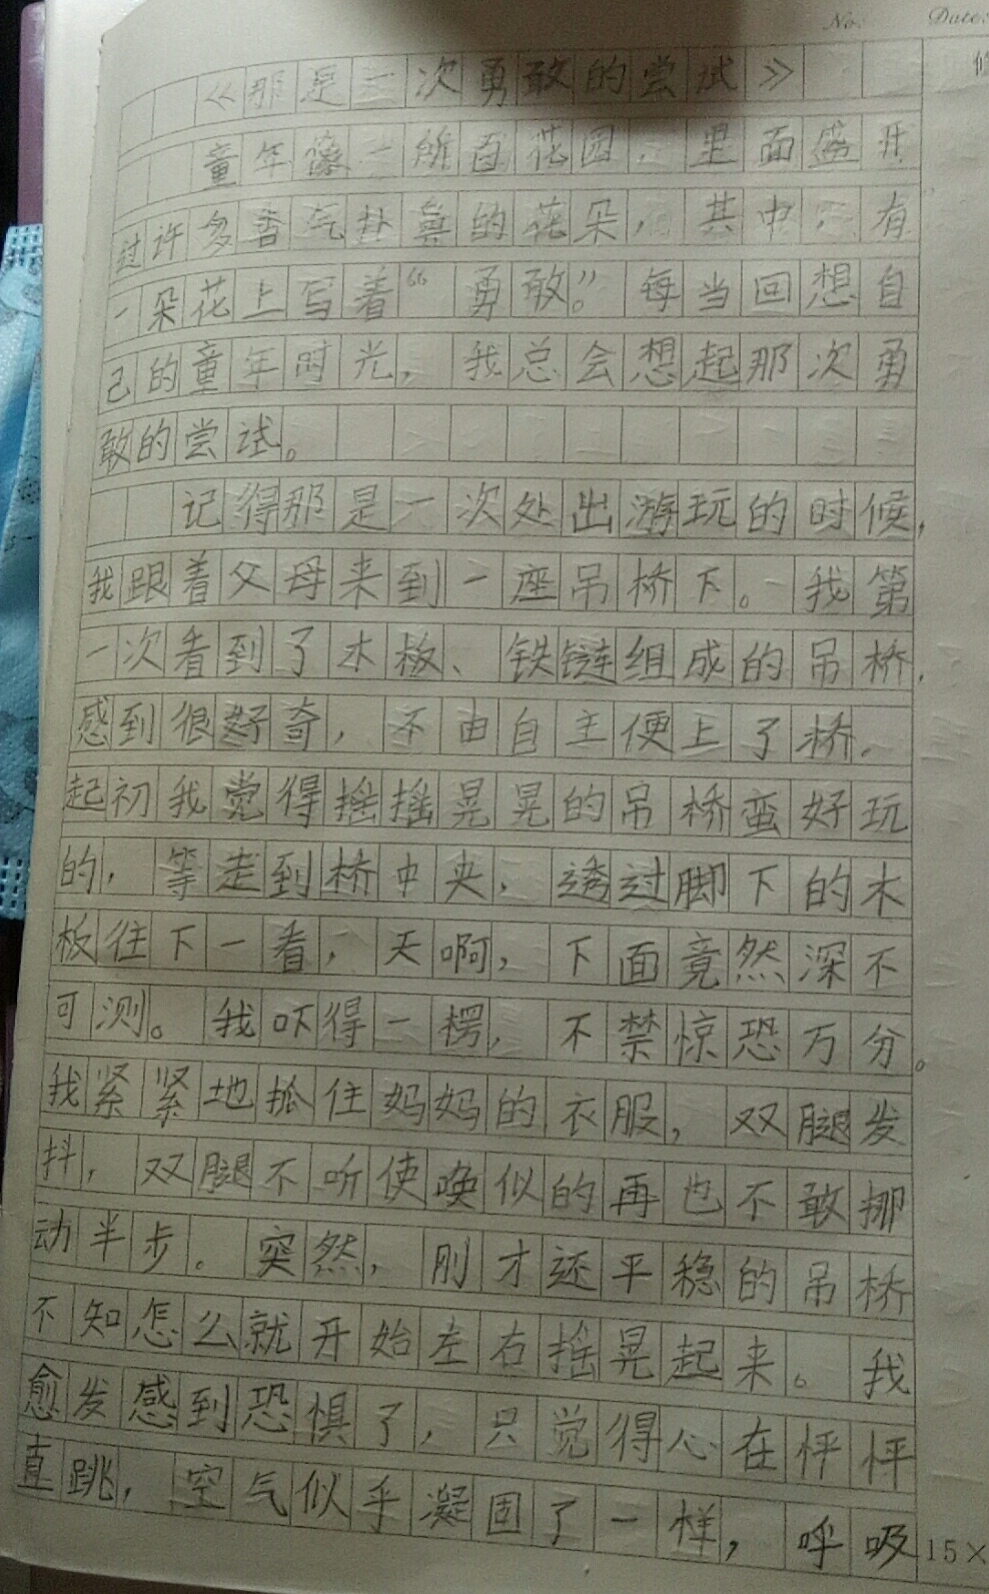 No: Date:
《那是一次勇敢的尝试》
童年像一所百花园，里面盛开
过许多香气扑鼻的花朵，其中，有
一朵花上写着“勇敢”。每当回想自
己的童年时光，我总会想起那次勇
敢的尝试。
记得那是一次处出游玩的时候，
我跟着父母来到一座吊桥下。我第
一次看到了木板、铁链组成的吊桥，
感到很好奇，不由自主便上了桥。
起初我觉得摇摇晃晃的吊桥蛮好玩
的，等走到桥中央，透过脚下的木
板往下一看，天啊，下面竟然深不
可测。我吓得一愣，不禁惊恐万分。
我紧紧地抓住妈妈的衣服，双腿发
抖，双腿不听使唤似的再也不敢挪
动半步。突然，刚才还平稳的吊桥
不知怎么就开始左右摇晃起来。我
愈发感到恐惧了，只觉得心在怦怦
直跳，空气似乎凝固了一样，呼吸
15×